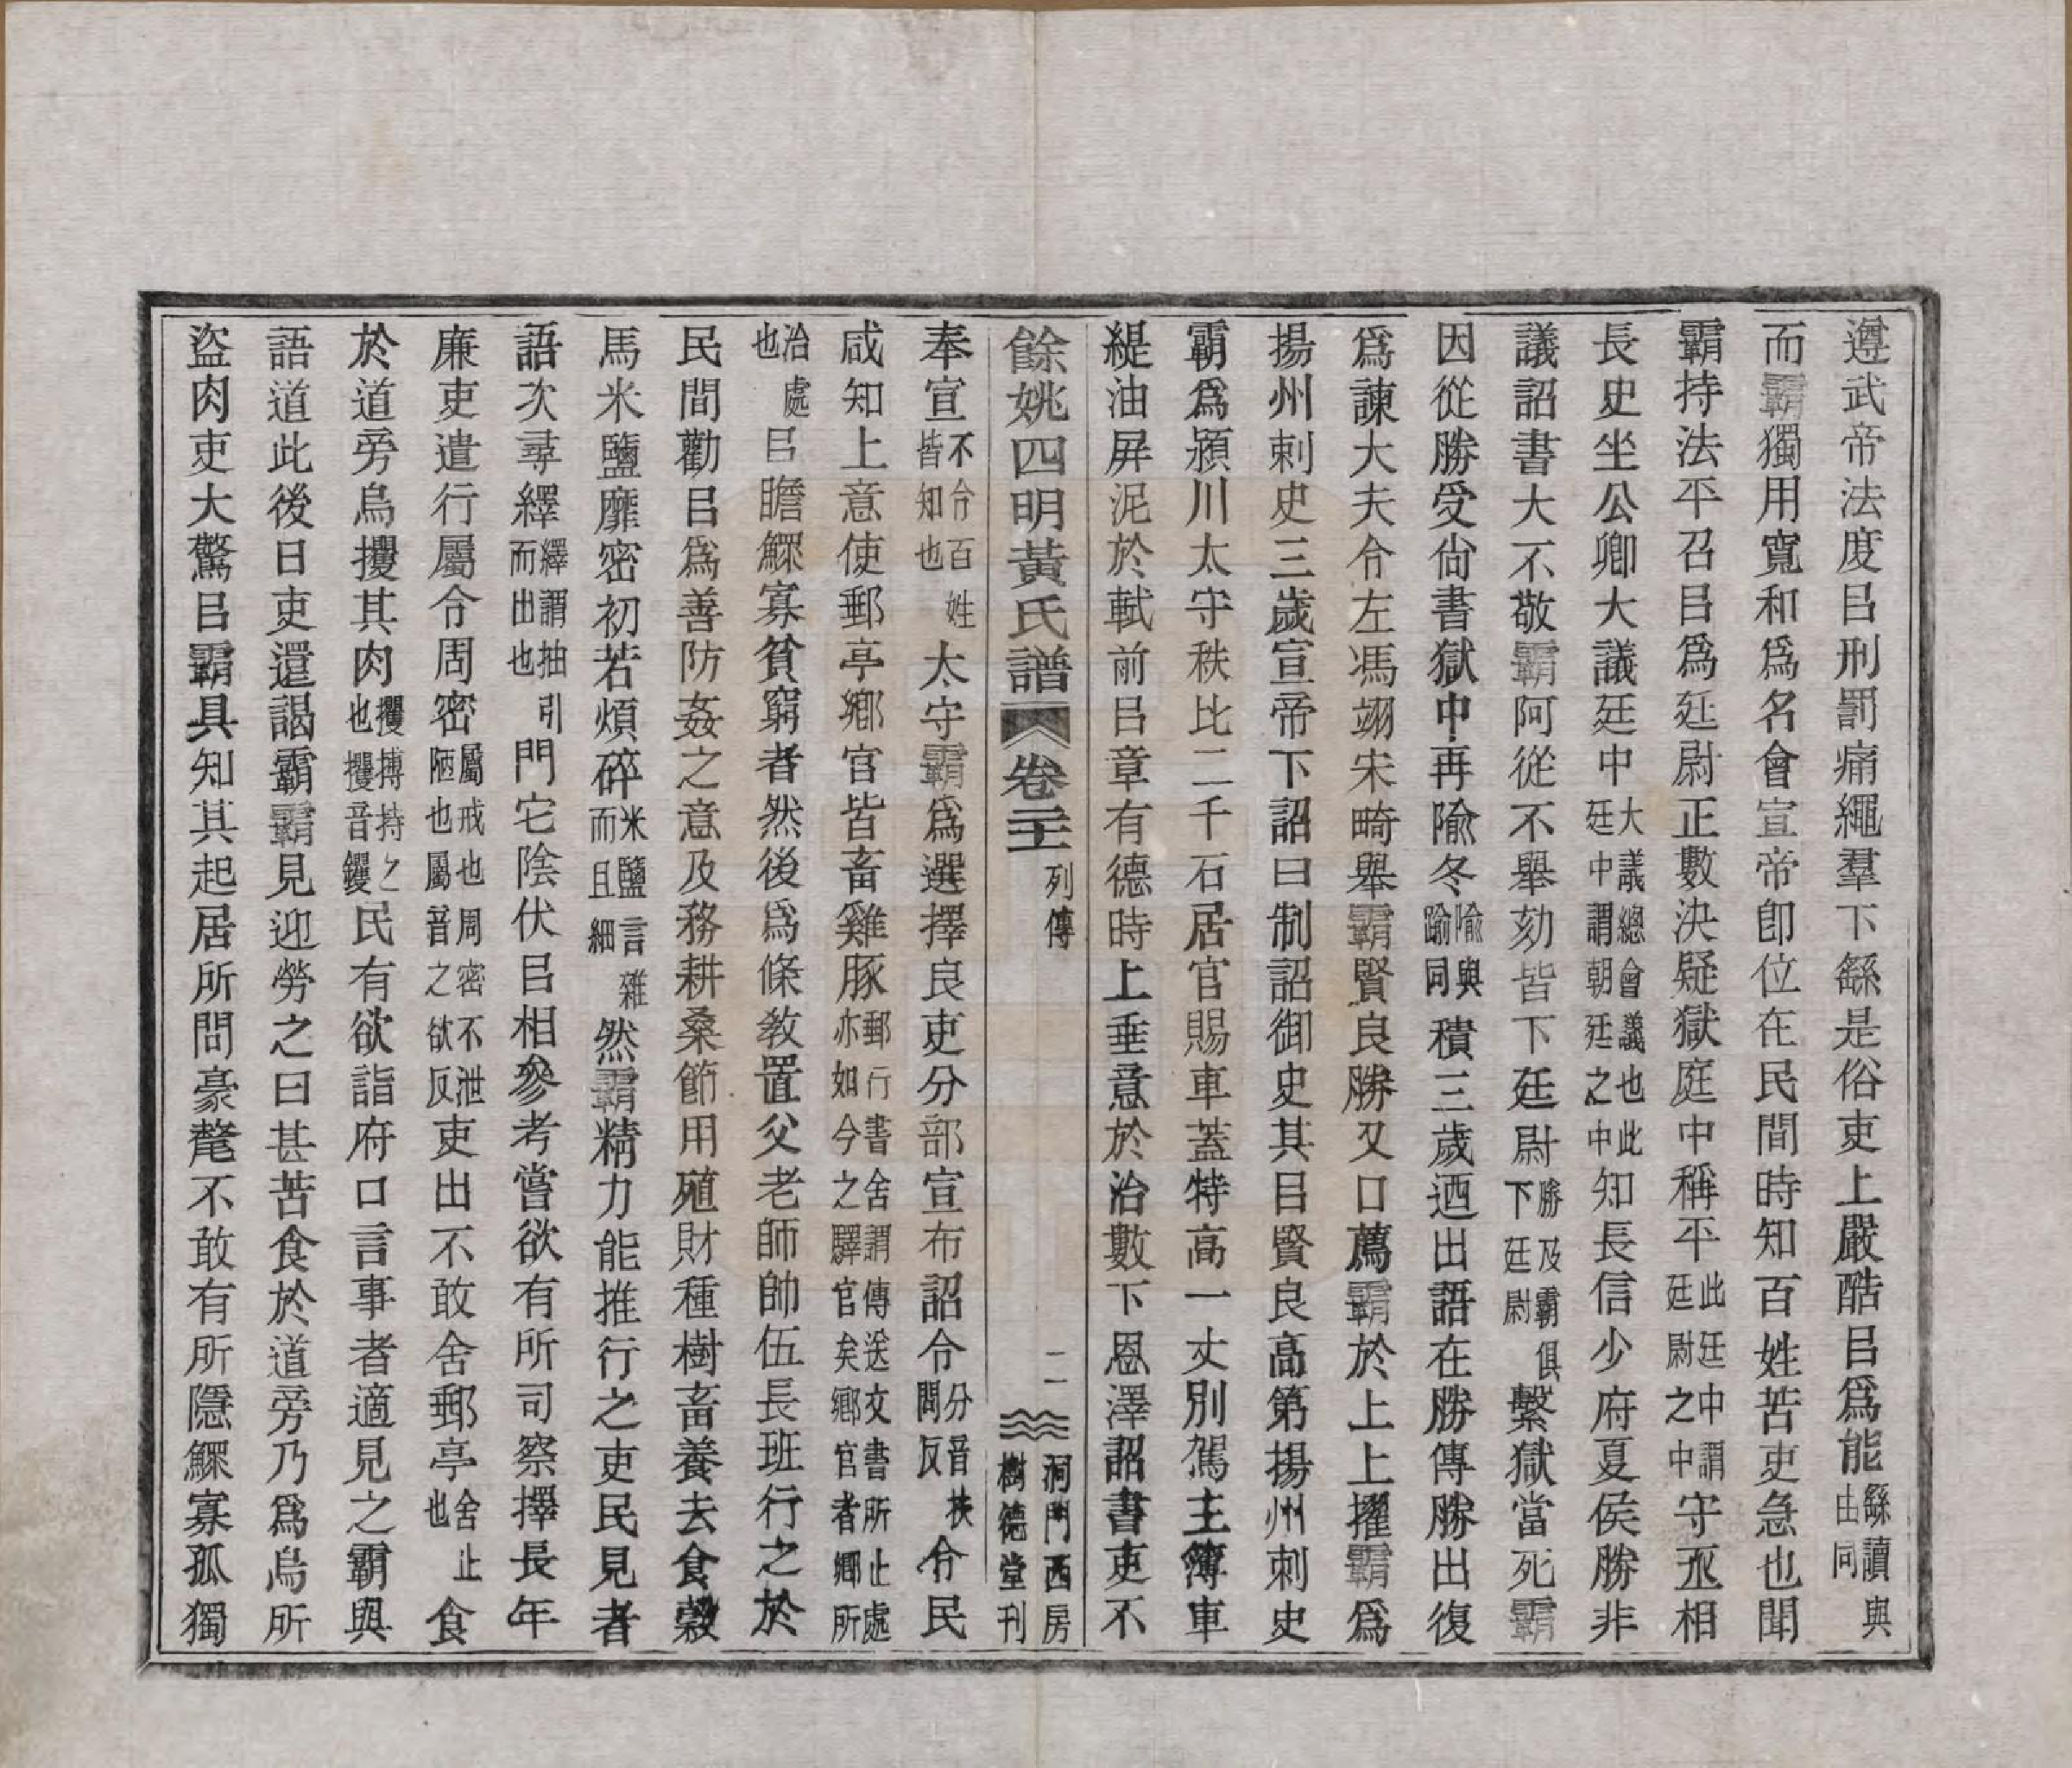 遵武帝法度㠯刑罰痛繩羣下繇是俗吏上嚴酷㠯爲能繇讀與由同
而霸獨用寬和爲名會宣帝卽位在民間時知百姓苦吏急也聞
霸持法平召㠯爲廷尉正數決疑獄庭中稱平此廷中謂廷尉之中守丞相
長史坐公卿大議廷中大議總會議也此廷中謂朝廷之中知長信少府夏侯勝非
議詔書大不敬霸阿從不舉劾皆下廷尉勝及霸俱下廷尉繫獄當死霸
因從勝受尙書獄中再隃冬隃與踰同積三歲迺出語在勝傳勝出復
爲諫大夫令左馮翊宋畸舉霸賢良勝又口薦霸於上上擢霸爲
揚州刺史三歲宣帝下詔曰制詔御史其㠯賢良高第揚州刺史
霸爲潁川太守秩比二千石居官賜車蓋特高一丈別駕主簿車
緹油屏泥於軾前㠯章有德時上垂意於治數下恩澤詔書吏不
餘姚四明黃氏譜 卷二十 列傳 二 洞門西房樹德堂刊
奉宣不令百姓皆知也太守霸爲選擇良吏分部宣布詔令分音扶問反令民
咸知上意使郵亭鄉官皆畜雞豚郵行書舍謂傳送文書所止處亦如今之驛官矣鄉官者鄉所
治處也㠯瞻鰥寡貧窮者然後爲條敎置父老師帥伍長班行之於
民間勸㠯爲善防姦之意及務耕桑節用殖財種樹畜養去食穀
馬米鹽靡密初若煩碎米鹽言雜而且細然霸精力能推行之吏民見者
語次尋繹繹謂抽引而出也問它陰伏㠯相參考嘗欲有所司察擇長年
廉吏遣行屬令周密屬戒也周密不泄陋也屬音之欲反吏出不敢舍郵亭舍止也食
於道旁烏攫其肉攫搏持之也攫音钁民有欲詣府口言事者適見之霸與
語道此後日吏還謁霸霸見迎勞之曰甚苦食於道旁乃爲烏所
盜肉吏大驚㠯霸具知其起居所問豪氂不敢有所隱鰥寡孤獨